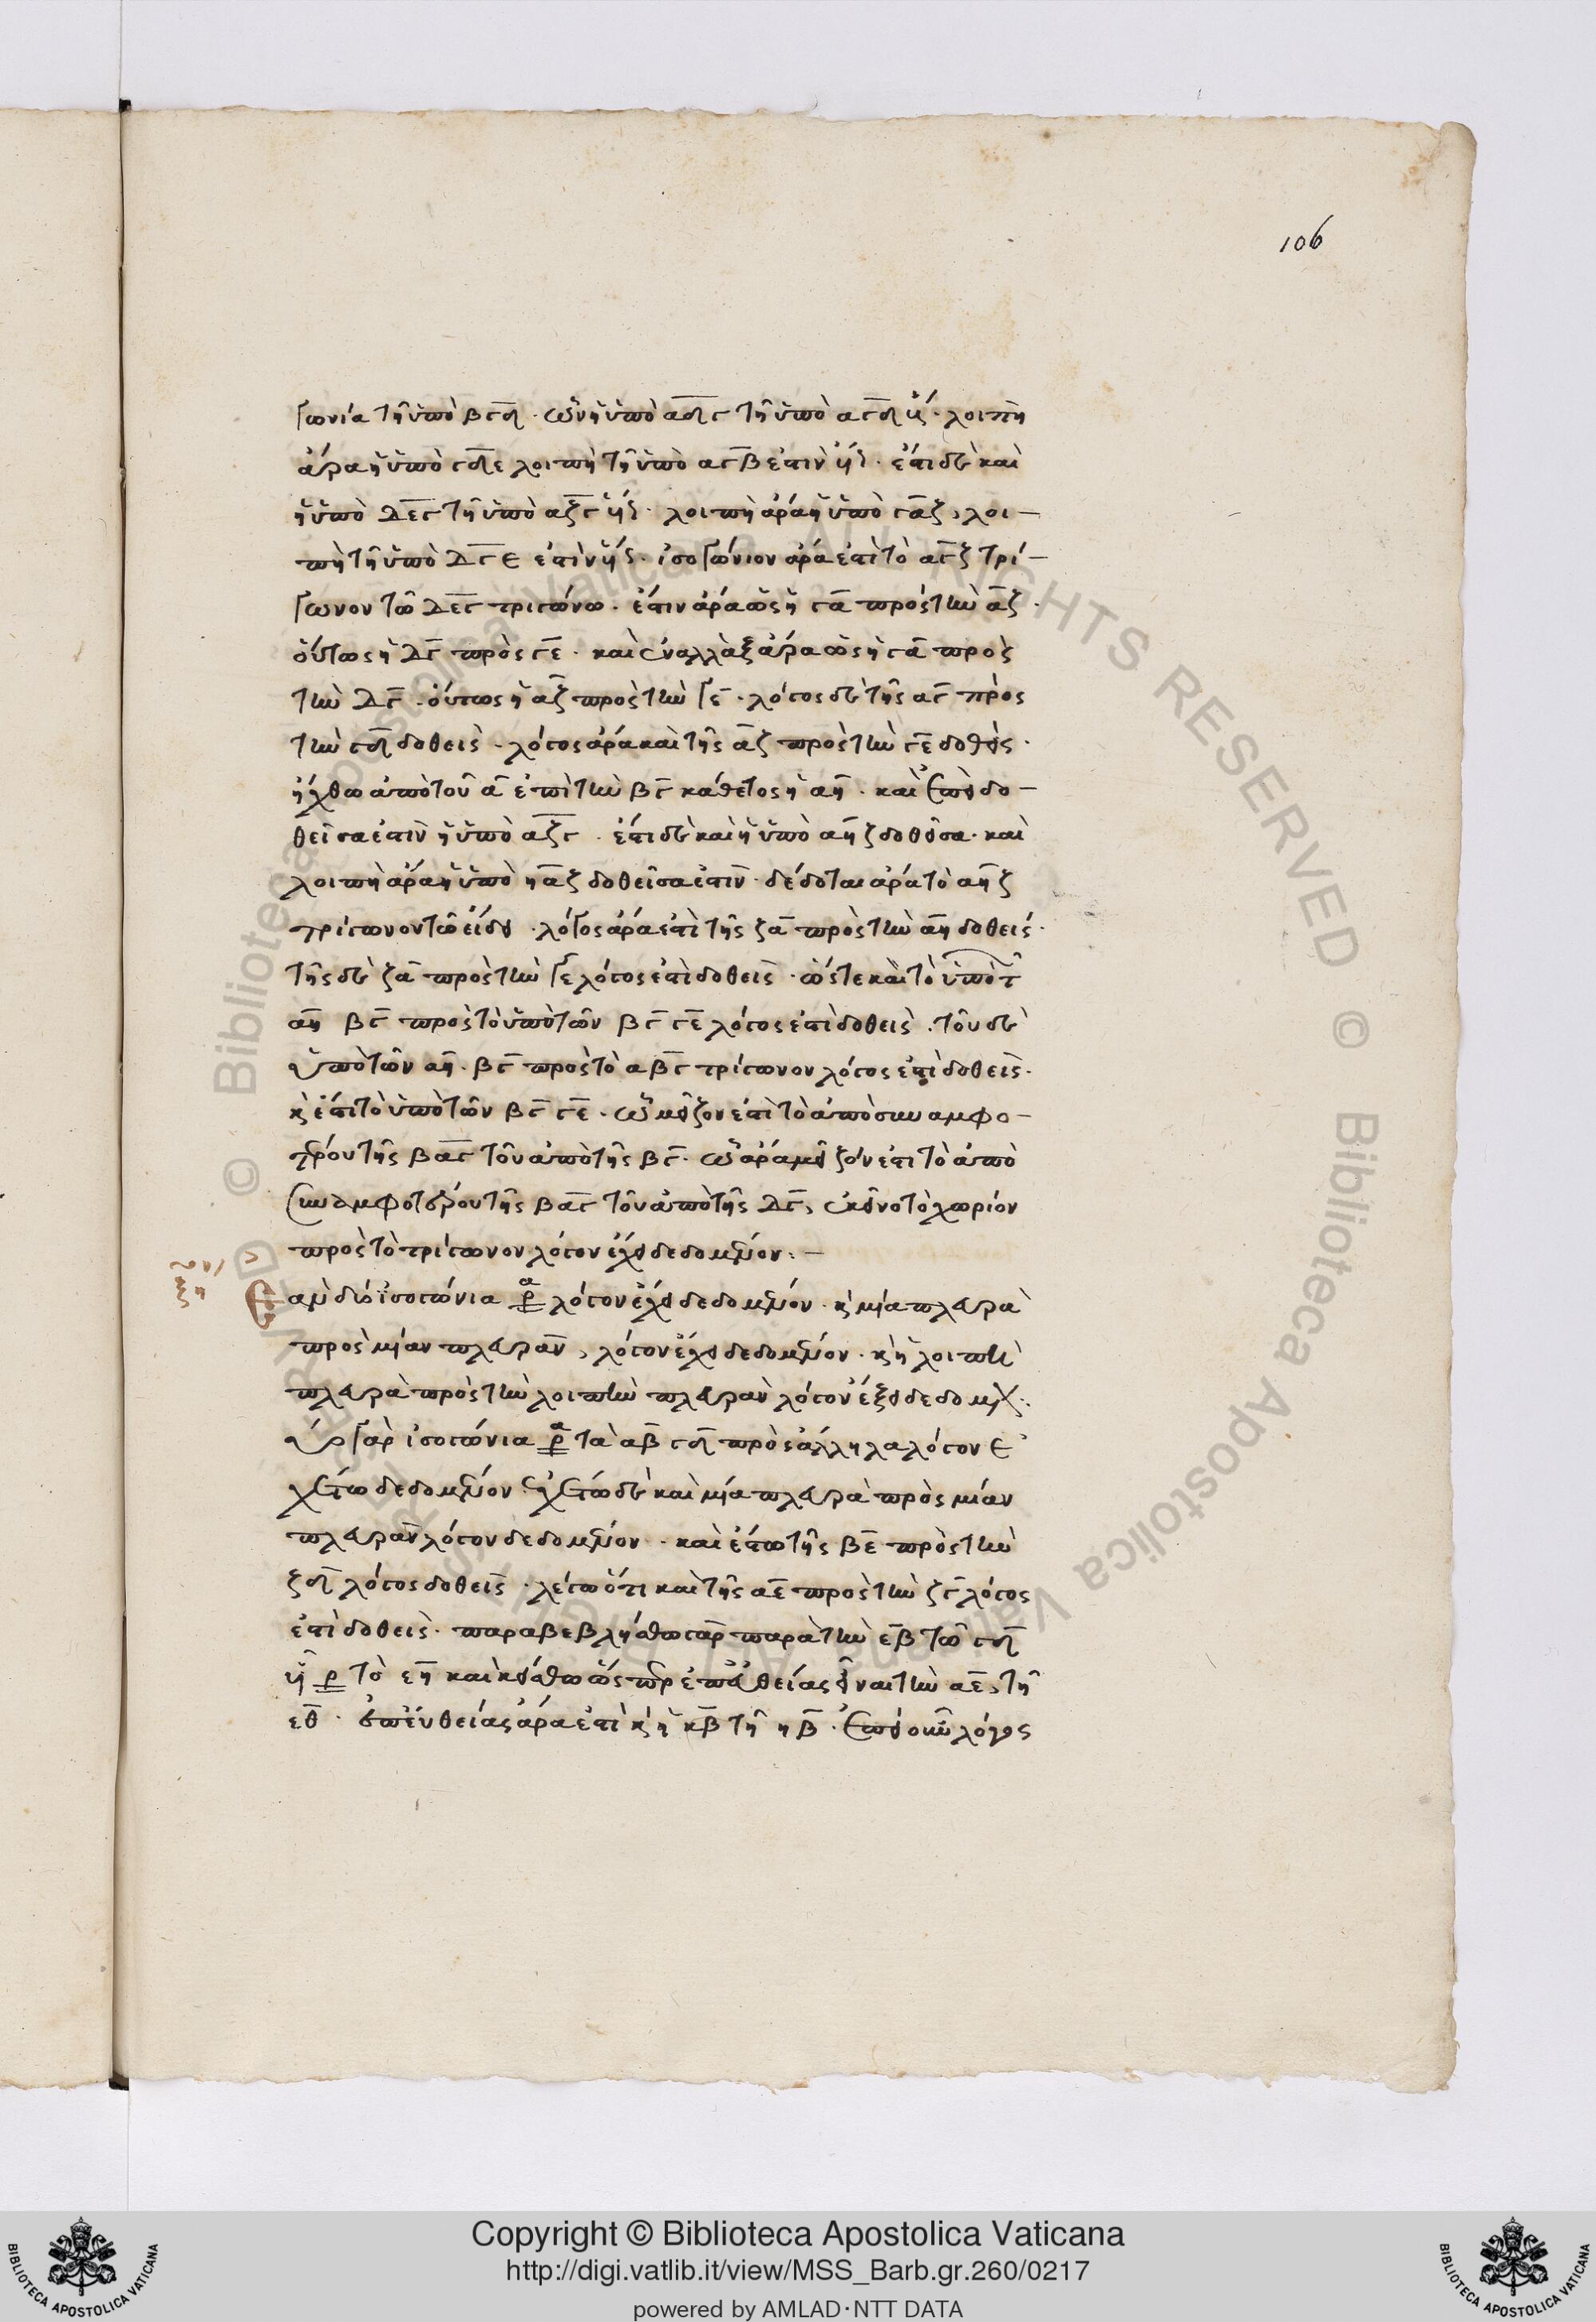 106
γωνία τῆ ὑπὸ βγδ. ὧν ἡ ὑπὸ αδγ τῆ ὑπὸ αγδ ἴση. λοιπὴ
ἄρα ἡ ὑπὸ γδε λοιπῆ τῆ ὑπὸ αγβ ἐστὶν ἴση. ἔστι δὲ καὶ
ἡ ὑπὸ δεγ τῆ ὑπὸ αζγ ἴση. λοιπὴ ἄρα ἡ ὑπὸ γαζ, λοι-
πῆ τῆ ὑπὸ δγε ἐστὶν ἴση. ἰσογώνιον ἄρα ἐστὶ τὸ αγζ τρί-
γωνον τῶ δεγ τριγώνω. ἔστιν ἄρα ὡς ἡ γα πρὸς τὴν αζ.
οὕτως ἡ δγ πρὸς γε. καὶ ἐναλλὰξ ἄρα ὡς ἡ γα πρὸς
τὴν δγ. οὕτως ἡ αζ πρὸς τὴν γε. λόγος δὲ τῆς αγ πρὸς
τὴν γδ δοθείς. λόγος ἄρα καὶ τῆς αζ πρὸς τὴν γε δοθείς.
ἤχθω ἀπὸ τοῦ α ἐπὶ τὴν βγ κάθετος ἡ αη. καὶ ἐπεὶ δο-
θεῖσα ἐστὶν ἡ ὑπὸ αζγ. ἔστι δὲ καὶ ἡ ὑπὸ αηζ δοθεῖσα. καὶ
λοιπὴ ἄρα ἡ ὑπὸ ηαζ δοθεῖσα ἐστίν. δέδοται ἄρα τὸ αηζ
τρίγωνον τῶ εἴδει. λόγος ἄρα ἐστὶ τῆς ζα πρὸς τὴν αη δοθείς.
τῆς δὲ ζα πρὸς τὴν γε λόγος ἐστὶ δοθείς. ὥστε καὶ τὸ ὑπὸ τῶν
αη βγ πρὸς τὸ ὑπὸ τῶν βγ γε λόγος ἐστὶ δοθείς. τοῦ δὲ
ὑπὸ τῶν αη. βγ πρὸς τὸ αβγ τρίγωνον λόγος ἐστὶ δοθείς.
κ ἔστι τὸ ὑπὸ τῶν βγ γε. ᾧ μεῖζον ἐστὶ τὸ ἀπὸ συναμφο-
τέρου τῆς βαγ τοῦ ἀπὸ τῆς βγ. ᾧ ἄρα μεῖζόν ἐστι τὸ ἀπὸ
συναμφοτέρου τῆς βαγ τοῦ ἀπὸ τῆς δγ, ἐκεῖνο τὸ χωρίον
πρὸς τὸ τρίγωνον λόγον ἔχει δεδομένον:-
Ἐὰν δύο ἰσογώνια π̅ρ̅α̅ λόγον ἔχει δεδομένον. κ μία πλευρὰ
πρὸς μίαν πλευρὰν, λόγον ἔχει δεδομένον. κ ἡ λοιπὴ
πλευρὰ πρὸς τὴν λοιπὴν πλευρὰν λόγον ἕξει δεδομένον.
δύο γὰρ ἰσογώνια π̅ρ̅α̅ τὰ αβ γδ πρὸς ἄλληλα λόγον ἐ
χέτω δεδομένον. ἐχέτω δὲ καὶ μία πλευρὰ πρὸς μίαν
πλευρὰν λόγον δεδομένον. καὶ ἔστω τῆς βε πρὸς τὴν
ζδ λόγος δοθείς. λέγω ὅτι καὶ τῆς αε πρὸς τὴν ζγ λόγος
ἐστὶ δοθείς. παραβεβλήσθω γὰρ παρὰ τὴν εβ τῶ γδ
ἴσον π̅ρ̅ τὸ εη καὶ κείσθω ὥστε ἐπ' εὐθείας εἶναι τὴν αε, τῆ
εθ. ἐπ' εὐθείας ἄρα ἐστὶ κ ἡ κβ τῆ ηβ. ἐπεὶ οὖν λόγος